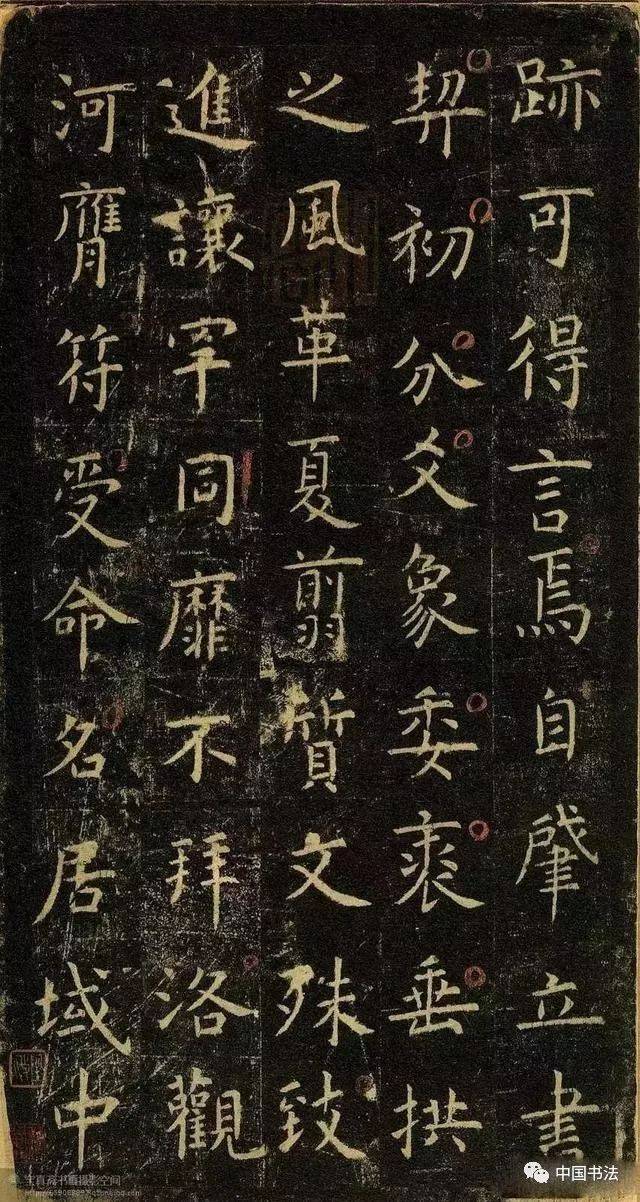 跡可得言焉自肇立書
契初分爻象委裘垂拱
之風革夏翦質文殊致
進讓罕同靡不拜洛觀
河膺符受命名居域中
中国书法